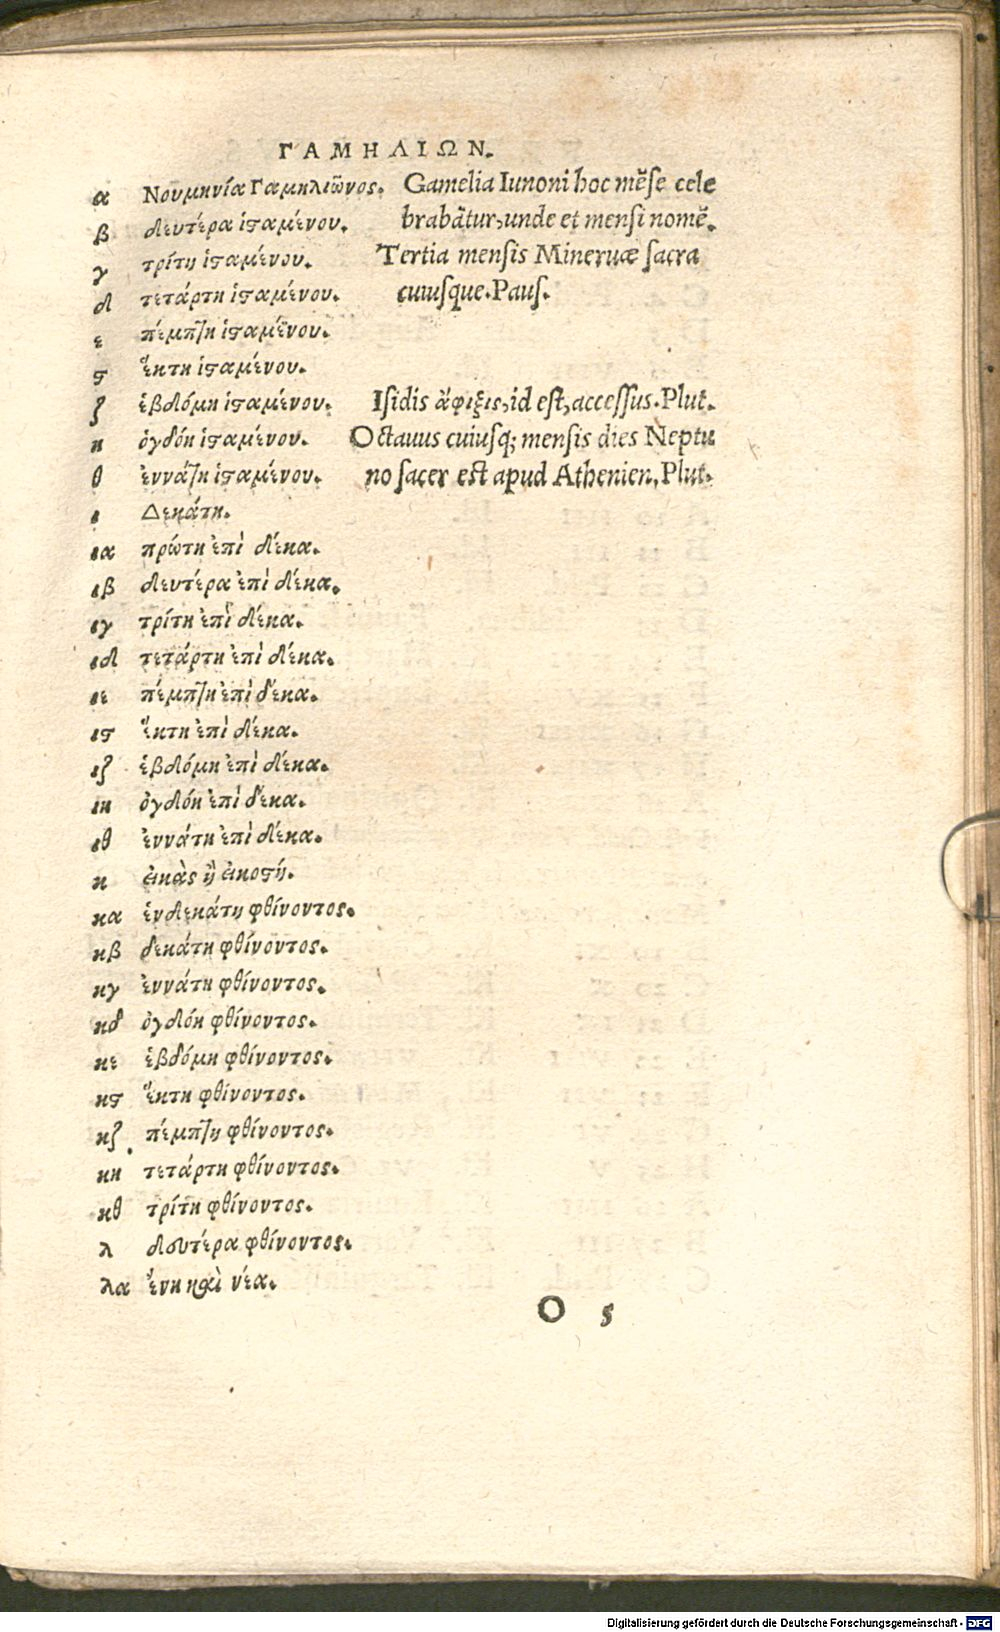 ΓΑΜΗΛΙΩΝ.
α Νουμηνία Γαμηλιῶνος. Gamelia Iunoni hoc mẽse cele
β δευτέρα ἱσαμένου. brabãtur, unde et mensi nomẽ.
γ τρίτη ἱϛαμένου. Tertia mensis Mineruæ sacra
δ τετάρτη ἱϛαμένου. cuiusque. Paus.
ε πέμπτη ἱϛαμένου.
ϛ ἕκτη ἱϛαμένου.
ζ ἑβδόμη ἱϛαμένου. Isidis ἄφιξις, id est, accessus. Plut.
η ὀγδόη ἱϛαμένου. Octauus cuiusq; mensis dies Neptu
θ ἐννάτη ἱϛαμένου. no sacer est apud Athenien, Plut.
ι Δεκάτη.
ια πρώτη ἐπὶ δέκα.
ιβ δευτέρα ἐπὶ δέκα.
ιγ τρίτη ἐπὶ δέκα.
ιδ τετάρτη ἐπὶ δέκα.
ιε πέμπτη ἐπὶ δέκα.
ιϛ ἕκτη ἐπὶ δέκα.
ιζ ἑβδόμη ἐπὶ δέκα.
ιη ὀγδόη ἐπὶ δέκα.
ιθ ἐννάτη ἐπὶ δέκα.
κ εἰκὰς ἢ εἰκοϛή.
κα ἑνδεκάτη φθίνοντος.
κβ δεκάτη φθίνοντος.
κγ ἐννάτη φθίνοντος.
κδ ὀγδόη φθίνοντος.
κε ἑβδόμη φθίνοντος.
κϛ ἕκτη φθίνοντος.
κζ πέμπτη φθίνοντος.
κη τετάρτη φθίνοντος.
κθ τρίτη φθίνοντος.
λ δευτέρα φθίνοντος.
λα ἕνη καὶ νέα.
O 5
Digitalisierung gefördert durch die Deutsche Forschungsgemeinschaft - DFG